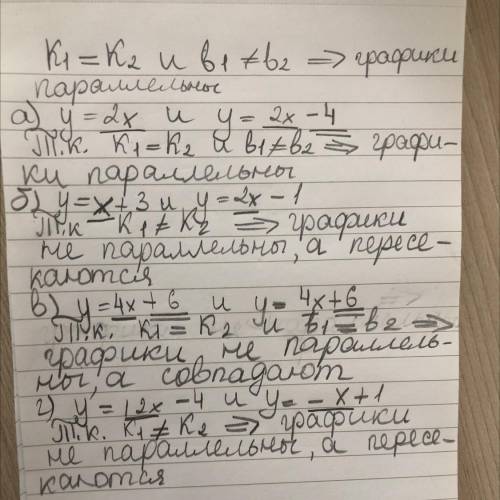 К1 = К2 и в1 ≠ в2 => графики
параллельны
а) у = 2х и у = 2х - 4
Т.к. К1 = К2 и в1 ≠ в2 => графи-
ки параллельны
б) у = х + 3 и у = 2х - 1
Т.к К1 ≠ К2 => графики
не параллельны, а пересе-
каются
в) у = 4х + 6 и у = 4х + 6
Т.к. К1 = К2 и в1 = в2 =>
графики не параллель-
ны, а совпадают
г) у = 12х - 4 и у = - х + 1
Т.к. К1 ≠ К2 => графики
не параллельны, а пересе-
каются